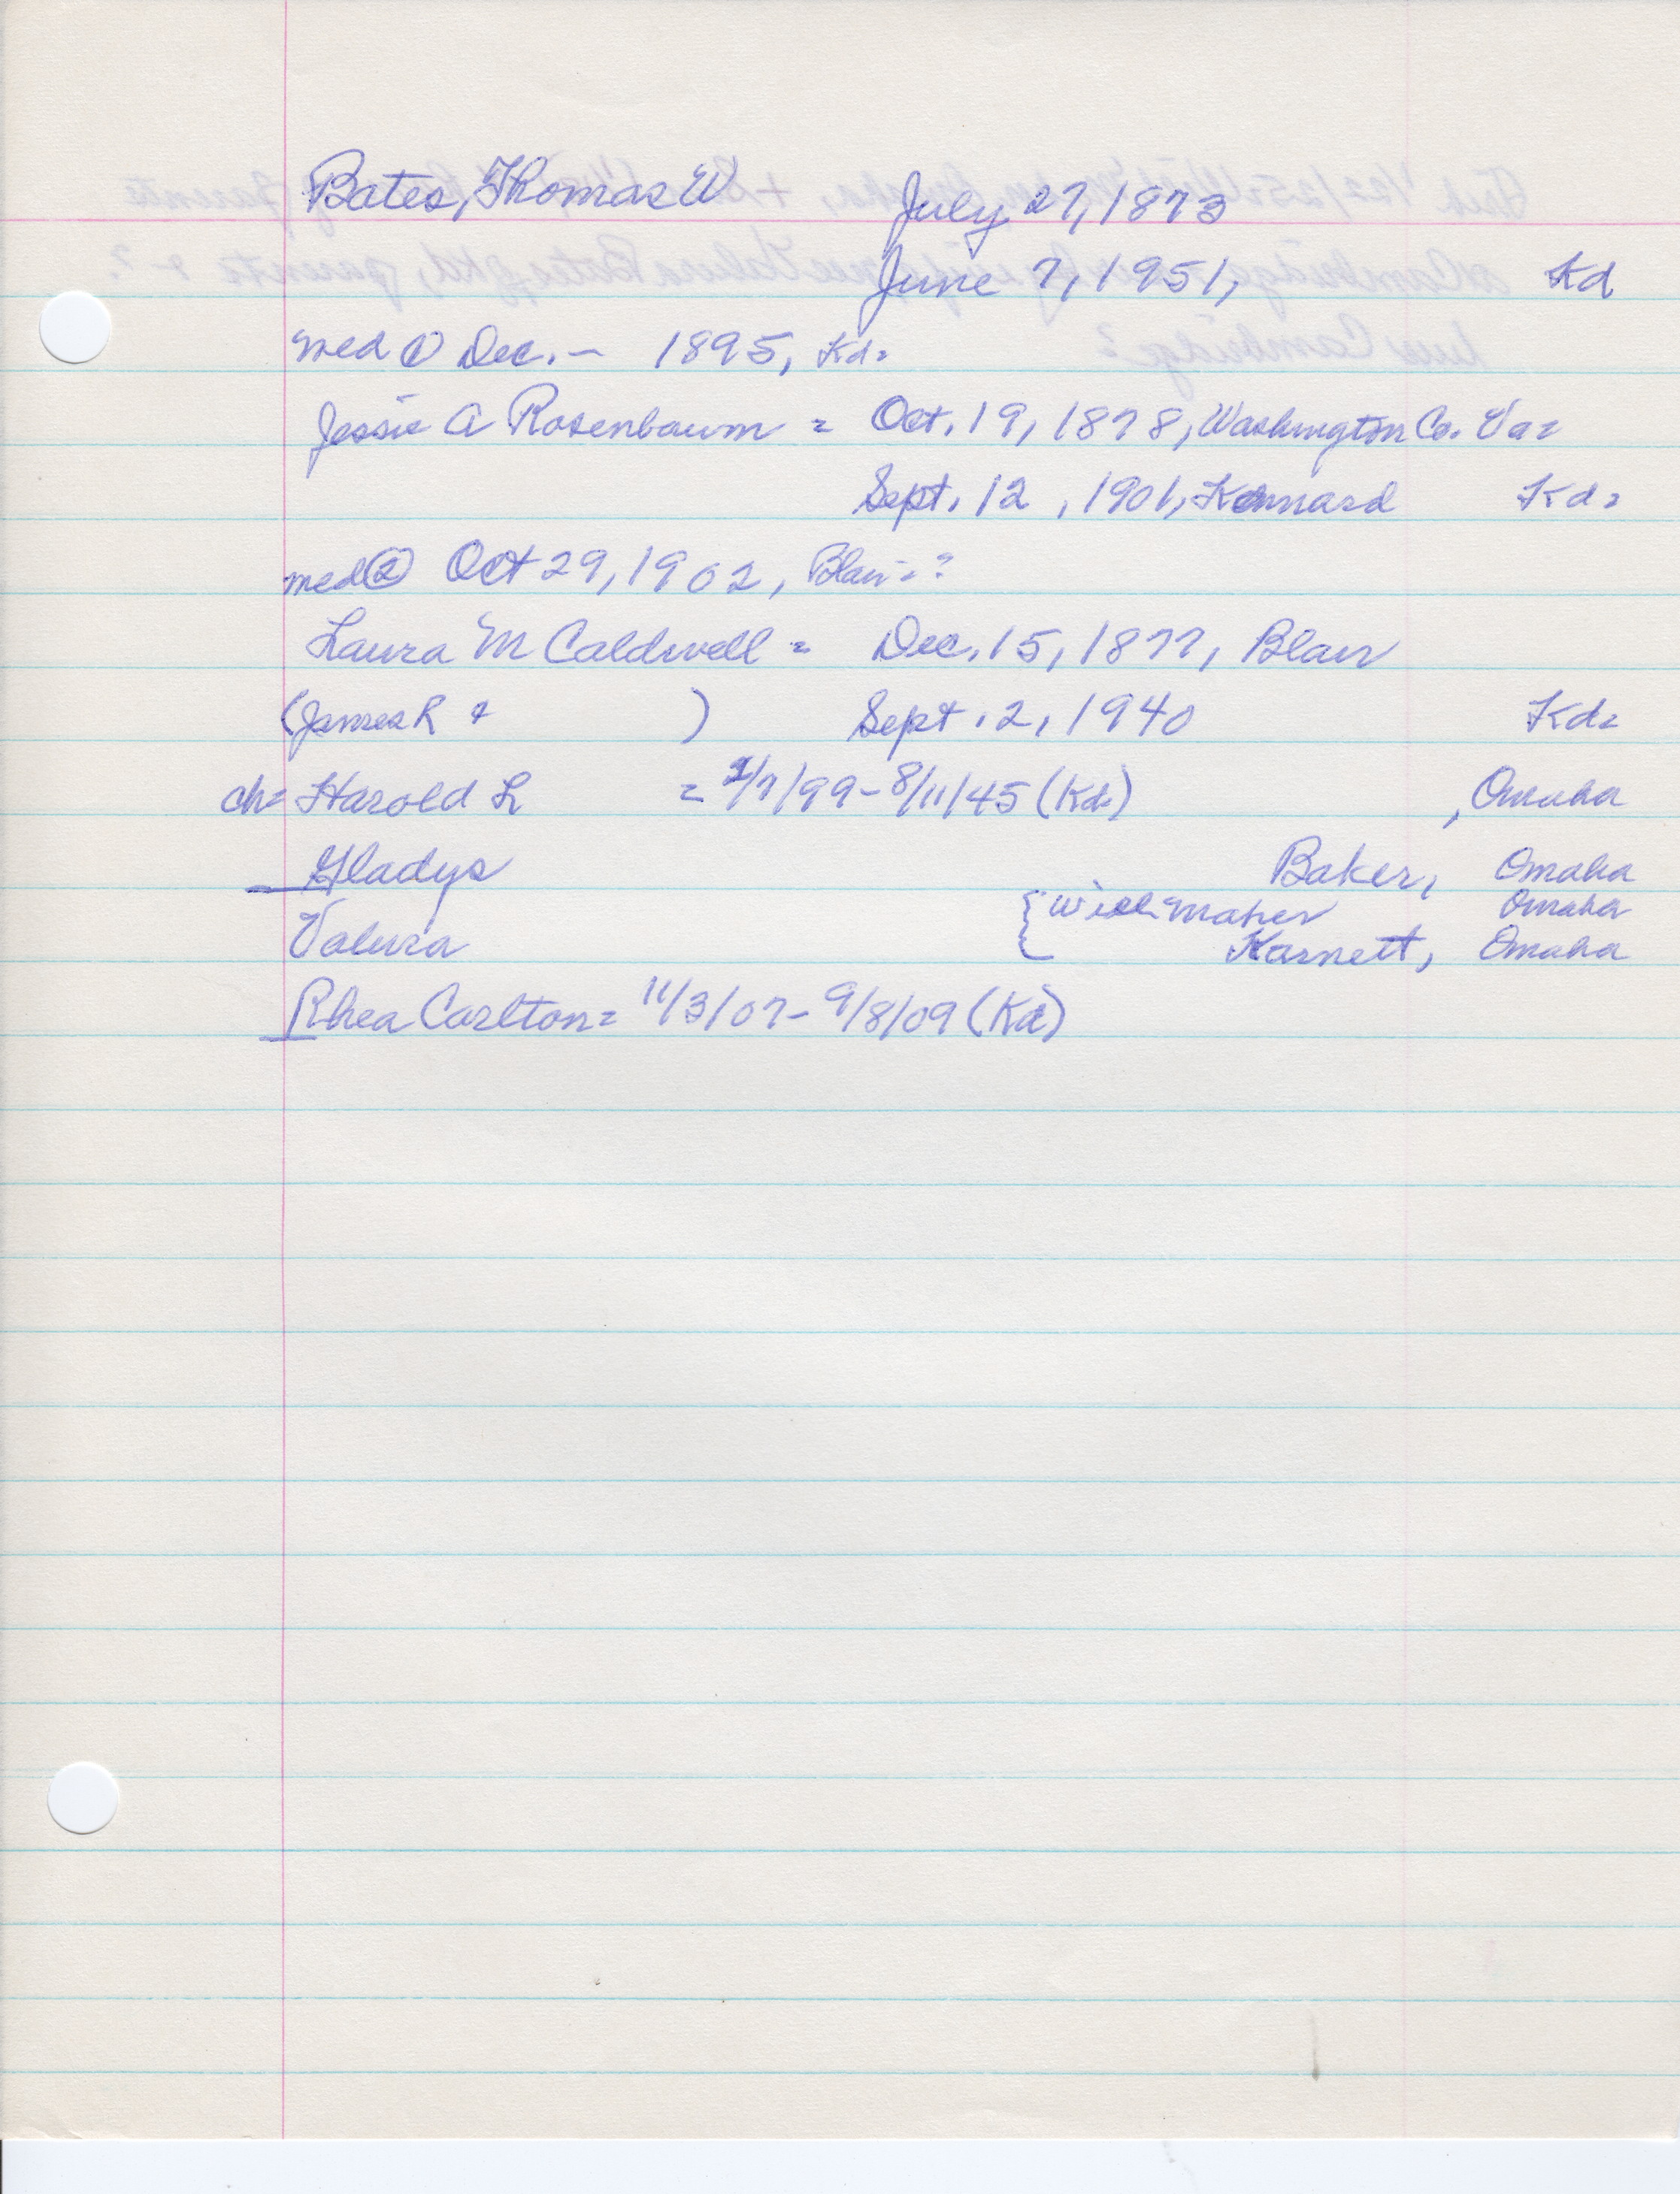 Bates, Thomas W July 27, 1873
June 7, 1951, Kd
med ① Dec. – 1895, Kd=
Jessie A Rosenbaum = Oct. 19, 1878, Washington Co. Va=
Sept. 12, 1901, Kennard Kd=
med ② Oct 29, 1902, Blair=?
Laura M Caldwell = Dec. 15, 1877, Blair
(James R & ) Sept. 2, 1940 Kd=
ch= Harold L = /7/99 – 8/11/45 (Kd=) , Omaha
Gladys Baker, Omaha
{ Omaha
Valura Karnett, Omaha
Rhea Carlton = 11/3/07 – 9/8/09 (Kd)